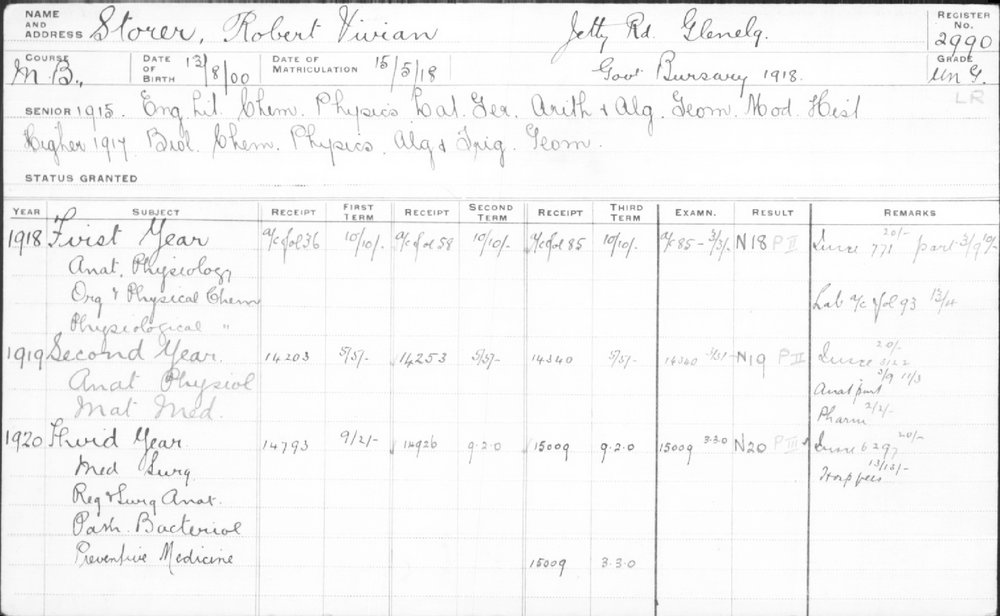 NAME AND ADDRESS Storer, Robert Vivian Jetty Rd. Glenelg. REGISTER No. 2990
COURSE M.B., DATE OF BIRTH 13/8/00 DATE OF MATRICULATION 15/5/18 Govt Bursary 1918. GRADE UnG.
LR
SENIOR 1915. Eng Lit. Chem. Physics Lat. Ger. Arith & Alg. Geom. Mod. Hist
Higher 1917. Biol. Chem. Physics. Alg & Trig. Geom.
STATUS GRANTED
YEAR SUBJECT RECEIPT FIRST TERM RECEIPT SECOND TERM RECEIPT THIRD TERM EXAMN. RESULT REMARKS
1918 First Year a/c fol 36 10/10/- a/c fol 58 10/10/- a/c fol 85 10/10/- a/c 85 - 3/3/- N18 P II 771 20/- part 3/9 10/-
Anat. Physiology
Org & Physical Chem Lab a/c fol 93 13/4
Physiological "
1919 Second Year. 14203 5/5/- 14253 5/5/- 14340 5/5/- 14340 3/3/- N19 P II 20/- 3/22
Anat Physiol 3/9 11/3 Anat part
Mat Med. Pharm 2/2/-
1920 Third Year 14793 9/2/- 14926 9.2.0 15009 9.2.0 15009 3.3.0 N20 P III 6297 20/-
Med Surg. Hosp fees 13/13/-
Reg & Surg Anat.
Path. Bacteriol
Preventive Medicine 15009 3.3.0